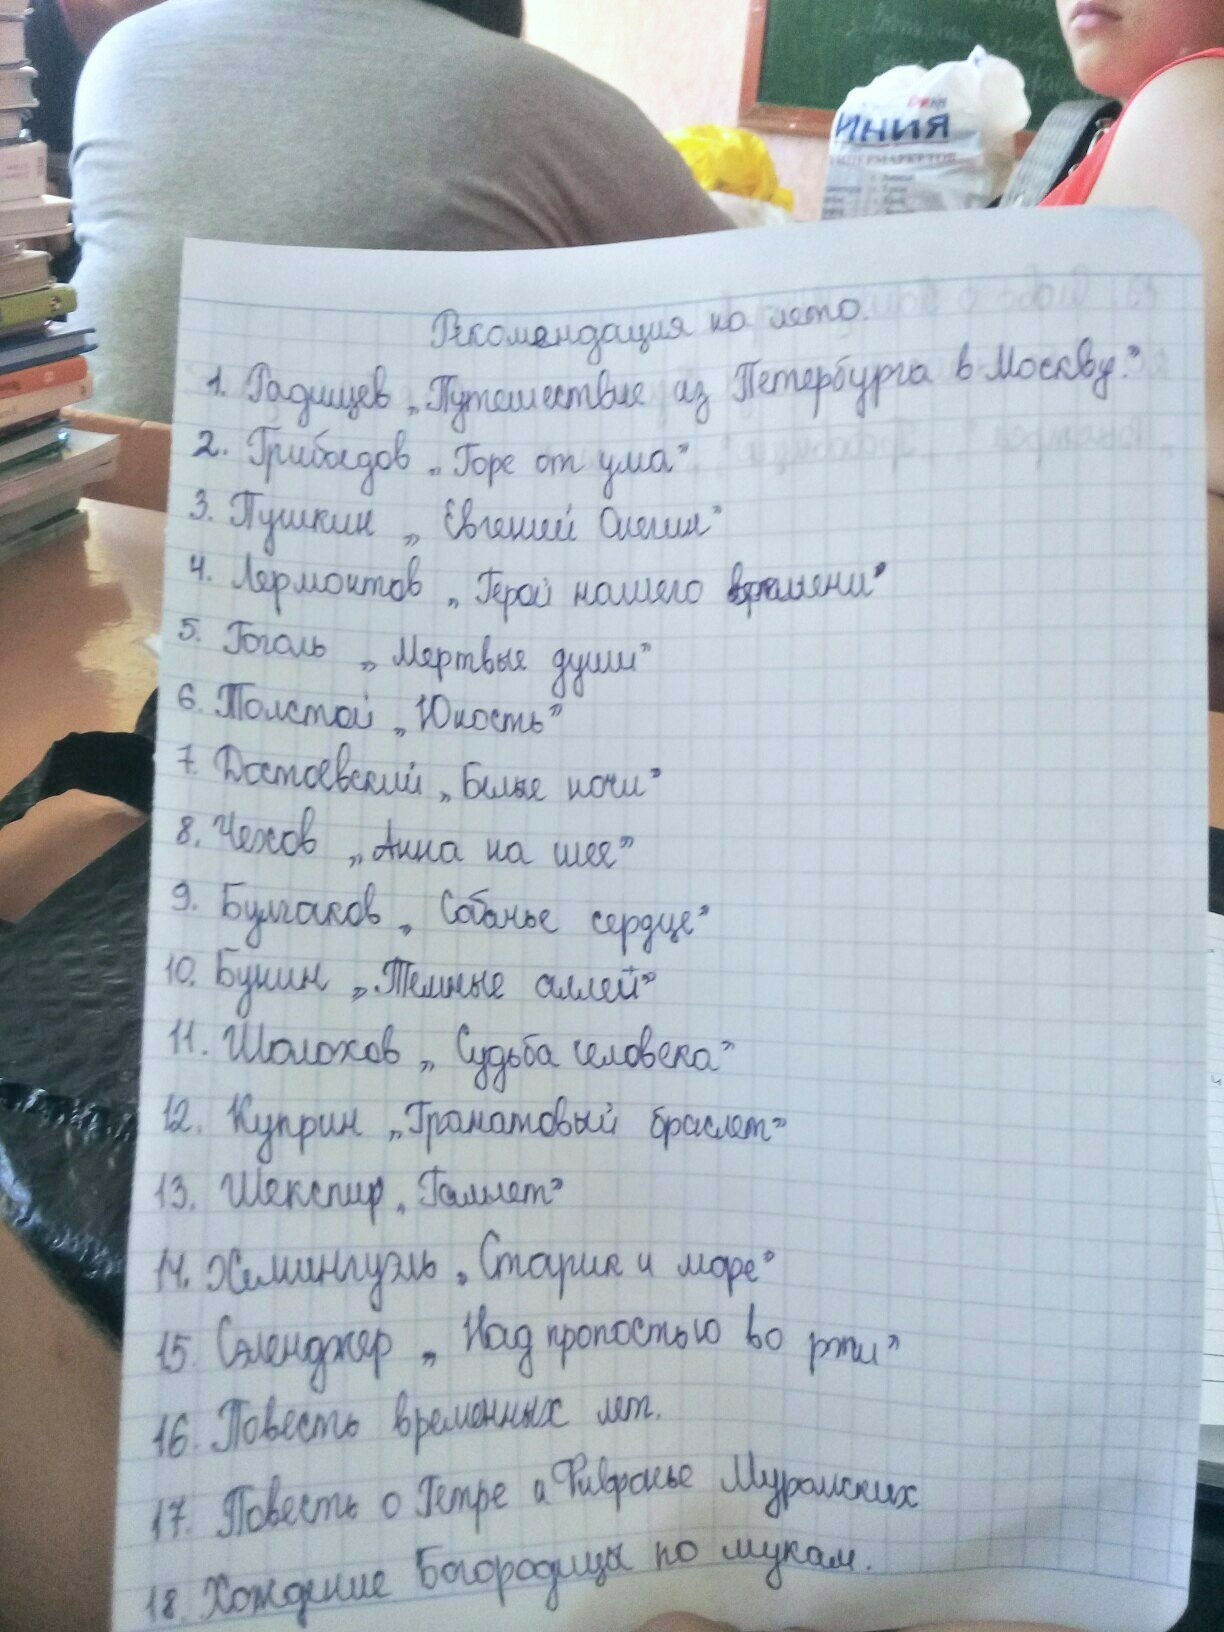 ИНИЯ
ГИПЕРМАРКЕТОВ
Рекомендация на лето.
1. Радищев „Путешествие из Петербурга в Москву."
2. Грибоедов „Горе от ума"
3. Пушкин „Евгений Онегин"
4. Лермонтов „Герой нашего времени"
5. Гоголь „Мертвые души"
6. Толстой „Юность"
7. Достоевский „Белые ночи"
8. Чехов „Анна на шее"
9. Булгаков „Собачье сердце"
10. Бунин „Темные аллей"
11. Шолохов „Судьба человека"
12. Куприн „Гранатовый браслет"
13. Шекспир „Гамлет"
14. Хемингуэль „Старик и море"
15. Сэленджер „Над пропостью во ржи"
16. Повесть временных лет.
17. Повесть о Петре и Февронье Муромских
18. Хождение Богородицы по мукам.